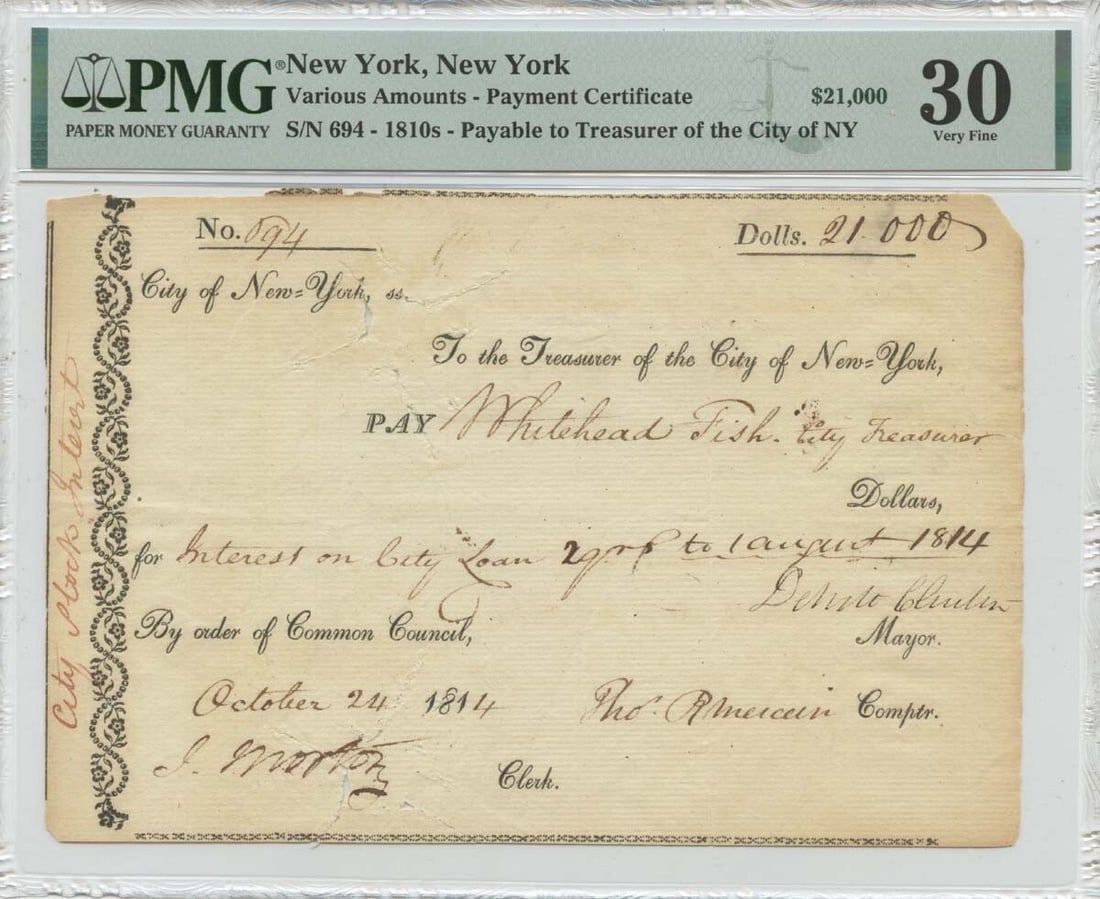 PMG® New York, New York
Various Amounts - Payment Certificate $21,000 30
PAPER MONEY GUARANTY S/N 694 - 1810s - Payable to Treasurer of the City of NY Very Fine
No. 694 Dolls. 21.000
City of New=York, ss.
To the Treasurer of the City of New=York,
PAY Whitehead Fish. City Treasurer
Dollars,
for Interest on City Loan to 1 august 1814
DeWitt Clinton
By order of Common Council, Mayor.
October 24 1814 Thos. R Mercein Comptr.
J. Morton Clerk.
City Stock Interest